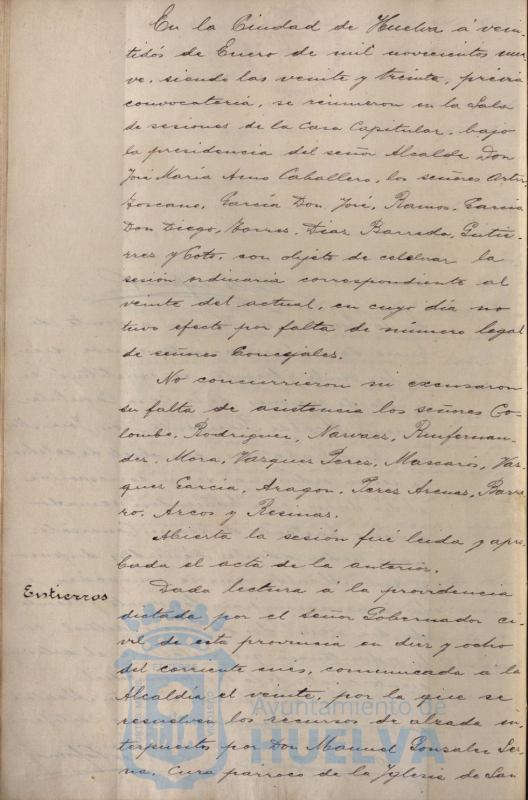 En la Ciudad de Huelva á vein-
tidós de Enero de mil novecientos nue-
ve, siendo las veinte y treinta, prévia
convocatoria, se reunieron en la Sala
de sesiones de la Casa Capitular, bajo
la presidencia del señor Alcalde Don
José María Amo Caballero, los señores
Toscano, García Don José, Ramos, García
Don Diego, Torres, Diaz Barreda, Gutie-
rrez y Coto, con objeto de celebrar la
sesión ordinaria correspondiente al
veinte del actual, en cuyo día no
tuvo efecto por falta de número legal
de señores Concejales.
No concurrieron ni excusaron
su falta de asistencia los señores Co-
lombo, Rodriguez, Narvaez,
Mora, Vazquez Perez, Mascarós, Vaz-
quez García, Aragon, Perez Arenas, Barre-
ro, Arcos y Resinas.
Abierta la sesión fué leida y apro-
bada el acta de la anterior.
Entierros
Dada lectura á la providencia
dictada por el señor Gobernador ci-
vil de esta provincia en diez y ocho
del corriente mes, comunicada á la
Alcaldía el veinte, por la que se
resuelven los recursos de alzada in-
terpuestos por Don Manuel Gonzalez Ser-
na, Cura párroco de la Yglesia de San
Ayuntamiento de
HUELVA